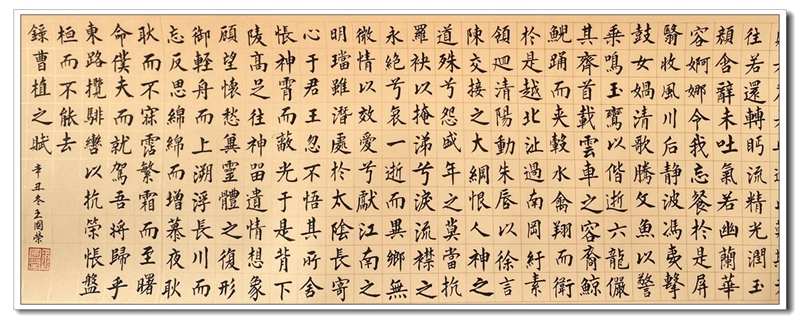 往若還轉眄流精光潤玉
顏含辭未吐氣若幽蘭華
容婀娜令我忘餐於是屏
翳收風川后静波馮夷擊
鼓女媧清歌騰文魚以警
乘鳴玉鸞以偕逝六龍儼
其齊首載雲車之容裔鯨
鯢踊而夾轂水禽翔而衛
於是越北沚過南岡紆素
領迴清陽動朱唇以徐言
陳交接之大綱恨人神之
道殊兮怨盛年之莫當抗
羅袂以掩涕兮淚流襟之
永絕兮哀一逝而異鄉無
微情以效愛兮獻江南之
明璫雖潛處於太陰長寄
心于君王忽不悟其所舍
悵神霄而蔽光于是背下
陵高足往神留遺情想象
顧望懷愁冀靈體之復形
御輕舟而上溯浮長川而
忘反思綿綿而增慕夜耿
耿而不寐霑繁霜而至曙
命僕夫而就駕吾將歸乎
東路攬騑轡以抗策悵盤
桓而不能去
錄曹植之賦
辛丑冬王國榮